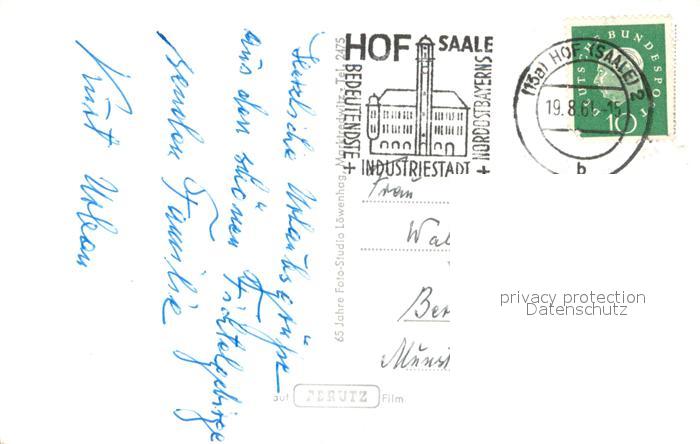 Herzliche Urlaubsgrüße
aus dem schönen Fichtelgebirge
Familie
Kurt
65 Jahre Foto-Studio Löwenhag, Marktredwitz · Tel. 2475
auf PERUTZ Film
HOF SAALE
BEDEUTENDSTE
NORDOSTBAYERNS
+ INDUSTRIESTADT +
DEUTSCHE BUNDESPOST
10
(13a) HOF (SAALE) 2
19.8.61-15
b
Frau
Wal
Ber
Münst
privacy protection
Datenschutz